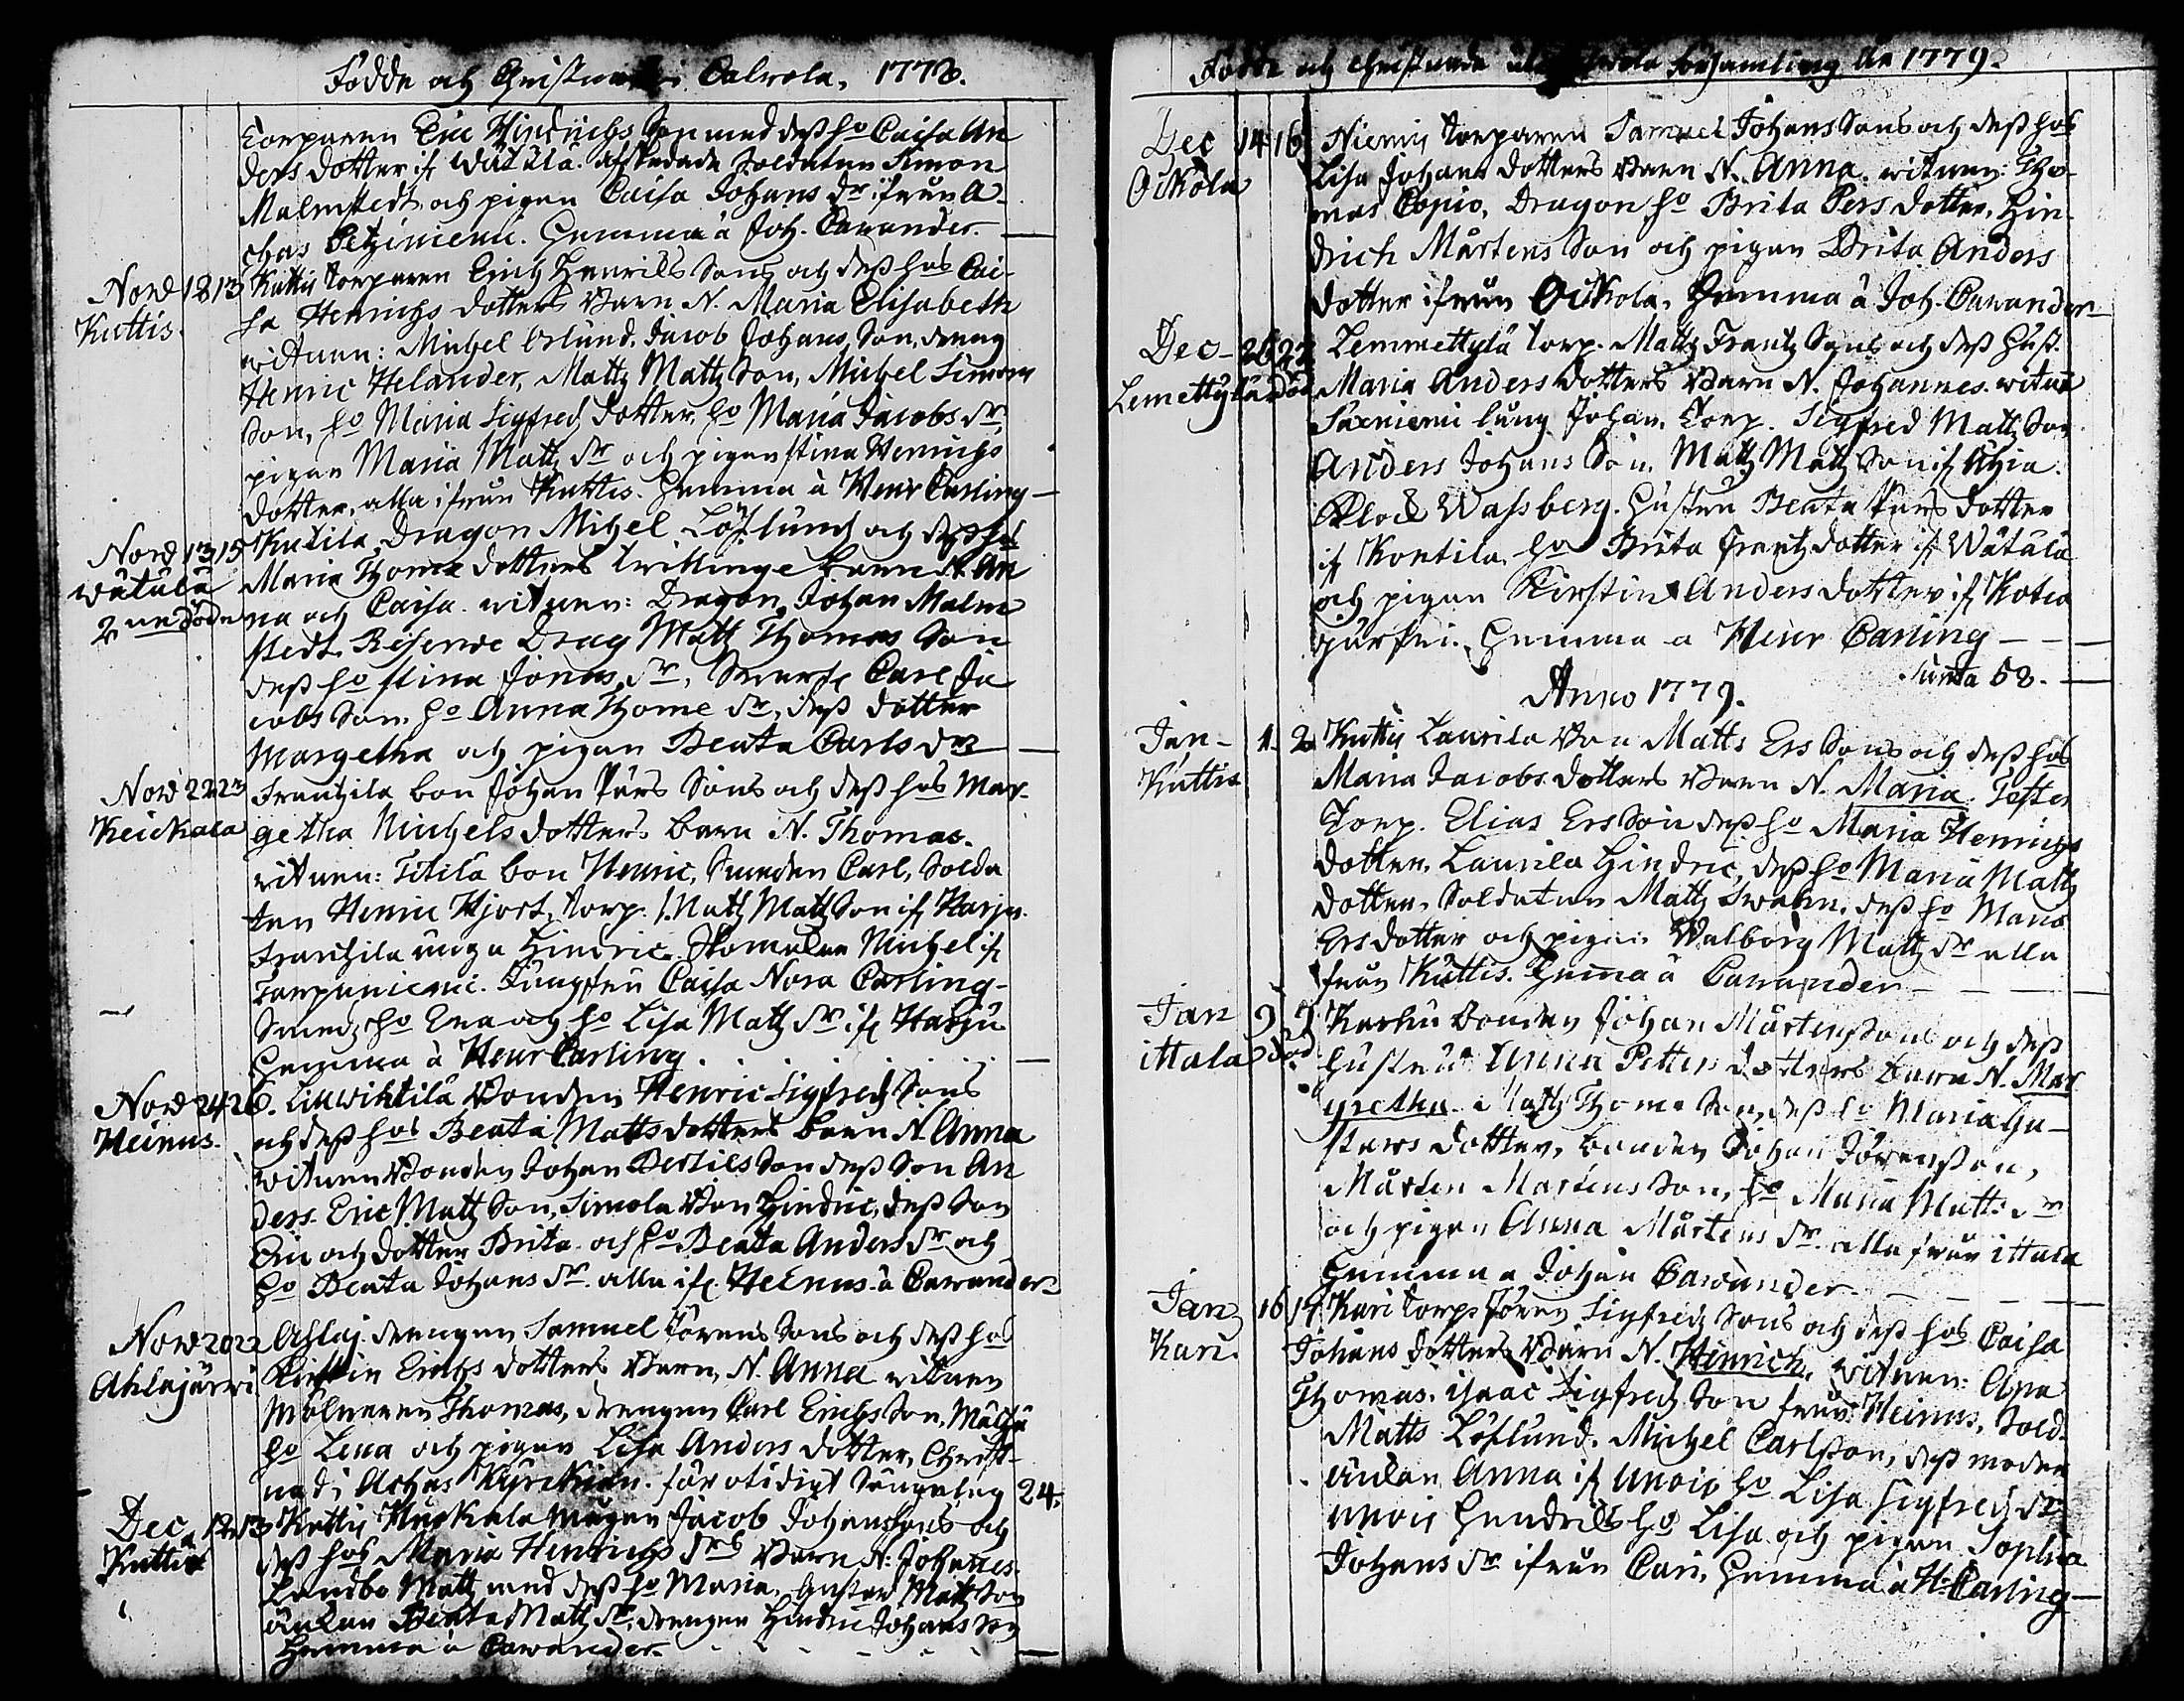 Födde och Christnade i Calvola, 1778.
Torparen Eric Hindrichs Son med dess ho Caisa An
ders dotter if Wätälä. afskedade Soldaten Simon
Malmstedt, och pigan Caisa Johans dr. ifrån A-
chas Petziniemi. Hemma à Joh. Cawander.
Nov 12 13 Kuttis torparen Erich Henrics Sons och dess hos Cai-
Kuttis. sa Henrichs dotters Barn N. Maria Elisabeth
witnen: Michel Orlund. Jacob Johans Son, dreng
Henric Helander, Matts Matts Son, Michel Simons
Son, ho Maria Sigfreds dotter, ho Maria Jacobs dr.
pigan Maria Matts dr och pigan Stina Henrichs
dotter, alla ifrån Kuttis. Hemma à Henr Carling
Nov 13 15 Kutila Dragon Michel Löflund och dess hos
Wätälä Maria Thome dotters twillinge barn N. An
2ne döde na och Caisa. witnen: Dragon Johan Malm
stedt. Reserve Drag Matts Thomas Son
dess ho Stina Jonas dr, Carl Ja
cobs Son. ho Anna Thome dr, dess dotter
Margetha och pigan Beata Carls dr
Nov 22 23 Frantzila bon Johan Pärs Sons och dess hos Mar-
Keickala getha Michels dotters barn N. Thomas.
witnen: Titilä bon Henric, Smeden Carl, Solda
ten Henric Hjort, torp. Matts Matts Son if Harju.
Frantzila unga Hindric. Skomakar Michel if
Tarpaniemi. Jungfru Caisa Nora Carling-
Smeds ho Eva och ho Lisa Matts dr if Harju
Hemma à Henr Carling.
Nov 24 26. Liuwiktilä Bonden Henric Sigfreds Sons
Heinus. och dess hos Beata Matts dotters barn N. Anna
witnen Bonden Johan Bertils Son dess Son An
ders. Eric Matts Son, Simola Bon Hindric, dess Son
Eric och dotter Brita och ho Beata Anders dr och
ho Beata Johans dr alla if Heinus à Cawander
Nov 20 22 Ahlaj. drengen Samuel Jörens Sons och dess hos
Ahlajärwi. Kirstin Erichs dotters Barn, N. Anna witnen
Mölnaren Thomas, drengen Carl Erichs Son,
ho Lena och pigan Lisa Anders dotter, Christ-
nad i Achas Kyrckian. för otidigt Sängelag 24.
Dec 12 13 Kuttis Huckala mågen Jacob Johans Sons och
Kuttis dess hos Maria Henrichs drs Barn N. Johannes.
Landbo Matts med dess ho Maria, Gustav Matts Son
änkan Beata Matts dr, drengen Hindric Johans Son
Hemma à Cawander.
Födde och Christnade församling År 1779.
Dec 14 16 Niemis torparen Samuel Johans Sons och dess hos
Oickola Lisa Johans dotters Barn N. Anna. witnen: Tho-
mas Copio, Dragon ho Brita Pers dotter, Hin
drich Mårtens Son och pigan Brita Anders
dotter ifrån Oickola. Hemma à Joh. Cawander
Dec 26 27 Lemmettylä torp. Matts Frantz Sons och dess Hust.
Lemettylä död Maria Anders dotters Barn N. Johannes. witne
Saxniemi lång Johan. Torp. Sigfred Matts Son
Anders Johans Son, Matts Matts Son if Ahia.
Wassberg. Hustru Beata Pärs dotter
if Kontila. ho Brita Frantz dotter if Wätälä
och pigan Kirstin Anders dotter if Kotca
jurfvi. Hemma a Henr Carling
Suma 58.
Anno 1779.
Jan 1. 2 Kuttis Laurila Bon Matts Ers Sons och dess hos
Kuttis Maria Jacobs dotters Barn N. Maria. Test.
Torp. Elias Ers Son dess ho Maria Henrichs
dotter, Laurila Hindric, dess ho Maria Matts
dotter, Soldaten Matts Swahn, dess ho Maria
Ers dotter och pigan Walborg Matts dr alla
från Kuttis. Hemma à Cawander
Jan 9 9 Karhu Bonden Johan Mårtens Sons och dess
ittala död Hustru Anna Petters dotters Barn N. Mar
gretha. Matts Thome Son, dess ho Maria Gu-
stavs dotter, bonden Johan Jörensson,
Mårten Mårtens Son, ho Maria Matts dr
och pigan Anna Mårtens dr. alla från ittala
Hemma a Johan Cawander.
Jan 16 17 Kari torp. Jören Sigfreds Sons och dess hos Caisa
Kari. Johans dotters Barn N. Hinrich. witnen:
Thomas. isaac Sigfreds Son från Heinus, Sold.
Matts Löflund. Michel Carlsson, dess moder
änkan Anna if Unois ho Lisa Sigfreds dr
Unois Hendrics ho Lisa och pigan Sophia
Johans dr ifrån Cari, Hemma à H. Carling